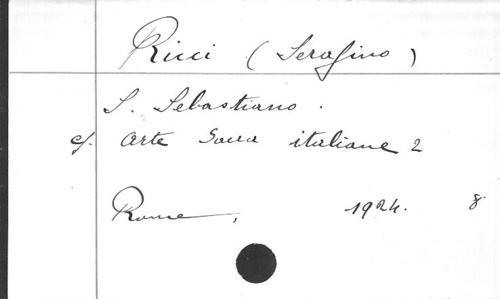 Ricci (Serafino)
S. Sebastiano.
cf. Arte Sacra italiane 2
Rome, 1924. 8